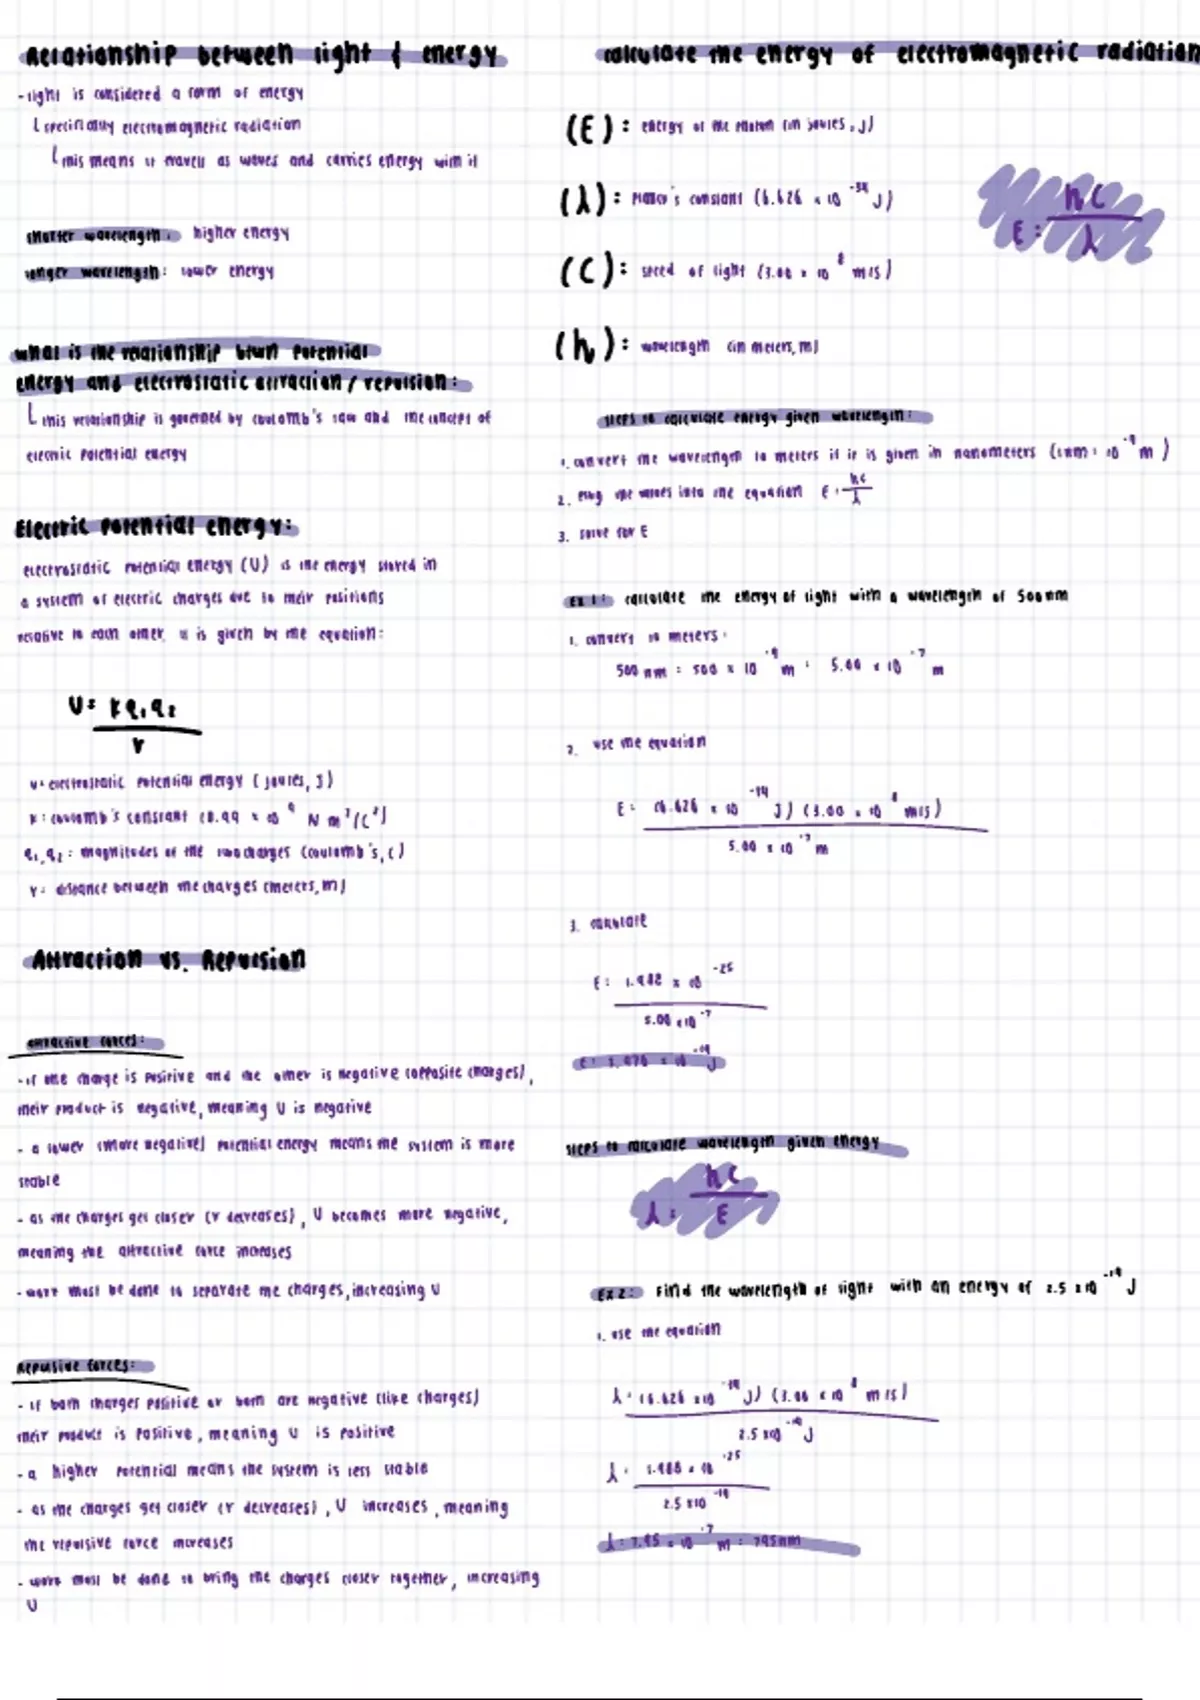 Relationship between light & energy
- light is considered a form of energy
specifically electromagnetic radiation
this means it travels as waves and carries energy with it
shorter wavelength: higher energy
longer wavelength: lower energy
what is the relationship btwn potential
energy and electrostatic attraction / repulsion:
this relationship is governed by coulomb's law and the concept of
electric potential energy
Electric potential energy:
electrostatic potential energy (U) is the energy stored in
a system of electric charges due to their positions
relative to each other, it is given by the equation:
U = k q₁ q₂
r
U = electrostatic potential energy (joules, J)
k: coulomb's constant (8.99 x 10⁹ N m²/C²)
q₁, q₂: magnitudes of the two charges (coulomb's, C)
r: distance between the charges (meters, m)
Attraction vs. Repulsion
attractive forces:
- if one charge is positive and the other is negative (opposite charges),
their product is negative, meaning U is negative
- a lower (more negative) potential energy means the system is more
stable
- as the charges get closer (r decreases), U becomes more negative,
meaning the attractive force increases
- work must be done to separate the charges, increasing U
Repulsive forces:
- if both charges positive or both are negative (like charges)
their product is positive, meaning U is positive
- a higher potential means the system is less stable
- as the charges get closer (r decreases), U increases, meaning
the repulsive force increases
- work must be done to bring the charges closer together, increasing
U
calculate the energy of electromagnetic radiation
(E): energy of the photon (in joules, J)
(λ): Planck's constant (6.626 x 10⁻³⁴ J)
E = hc
λ
(C): speed of light (3.00 x 10⁸ m/s)
(h): wavelength (in meters, m)
steps to calculate energy given wavelength:
1. convert the wavelength to meters if it is given in nanometers (1nm = 10⁻⁹ m)
2. plug the values into the equation E = hc/λ
3. solve for E
Ex 1: calculate the energy of light with a wavelength of 500nm
1. convert to meters:
500 nm = 500 x 10⁻⁹ m = 5.00 x 10⁻⁷ m
2. use the equation
E = (6.626 x 10⁻³⁴ J) (3.00 x 10⁸ m/s)
5.00 x 10⁻⁷ m
3. calculate
E = 1.988 x 10⁻²⁵
5.00 x 10⁻⁷
E = 3.976 x 10⁻¹⁹ J
steps to calculate wavelength given energy
λ = hc
E
Ex 2: Find the wavelength of light with an energy of 2.5 x 10⁻¹⁹ J
1. use the equation
λ = (6.626 x 10⁻³⁴ J) (3.00 x 10⁸ m/s)
2.5 x 10⁻¹⁹ J
λ = 1.988 x 10⁻²⁵
2.5 x 10⁻¹⁹
λ = 7.95 x 10⁻⁷ m = 795nm